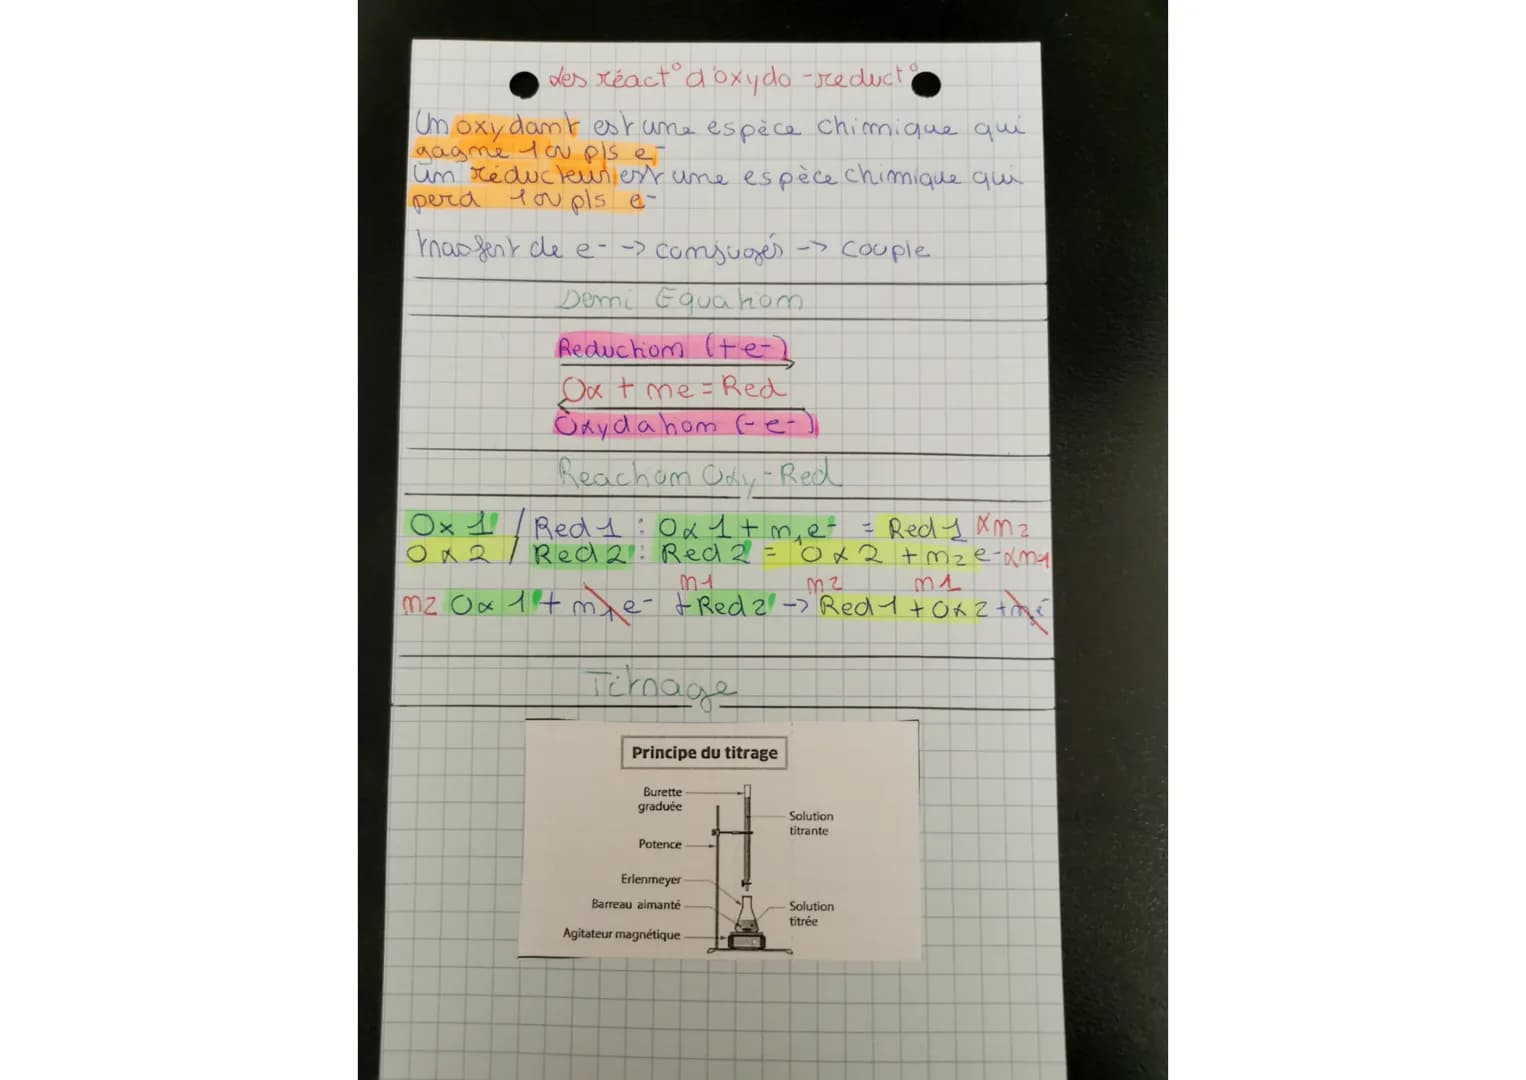 Les réact° d'oxydo-reduct°
Un oxydant est une espèce chimique qui
gagne 1 ou pls e-
Un réducteur est une espèce chimique qui
perd 1 ou pls e-
trasfert de e- -> conjugés -> couple
Demi Equation
Reduction (+e-)
Ox + ne = Red
Oxydation (-e-)
Reaction Oxy-Red
Ox 1 / Red 1 : Ox 1 + n1e- = Red 1 xn2
Ox 2 / Red 2 : Red 2 = Ox 2 + n2e- xn1
n1 n2 n1
n2 Ox 1 + n1e- + Red 2 -> Red 1 + Ox 2 + ne-
Titrage
Principe du titrage
Burette
graduée
Solution
titrante
Potence
Erlenmeyer
Barreau aimanté
Solution
titrée
Agitateur magnétique